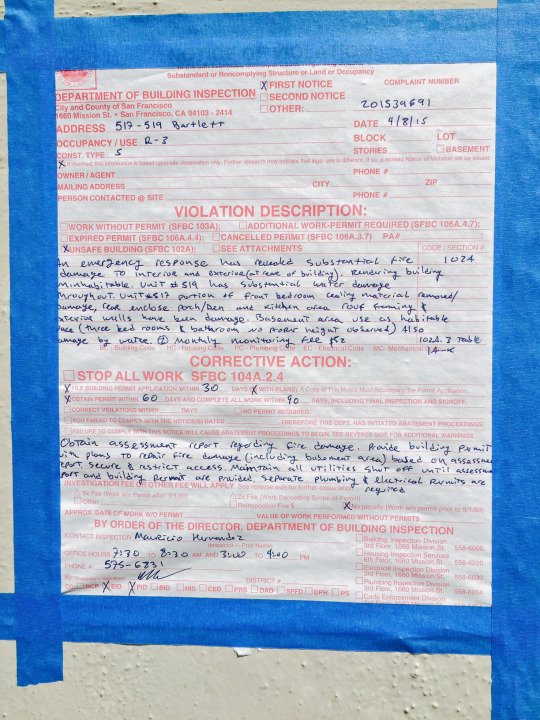 NOTICE OF VIOLATION
Substandard or Noncomplying Structure or Land or Occupancy
DEPARTMENT OF BUILDING INSPECTION
City and County of San Francisco
1660 Mission St. • San Francisco, CA 94103 - 2414
X FIRST NOTICE
SECOND NOTICE
OTHER:
COMPLAINT NUMBER
201539691
ADDRESS 517-519 Bartlett
DATE 9/8/15
OCCUPANCY / USE R-3
BLOCK LOT
CONST. TYPE 5
STORIES BASEMENT
X If checked, this information is based upon site observation only. Further research may indicate that legal use is different. If so, a revised Notice of Violation will be issued.
OWNER / AGENT PHONE #
MAILING ADDRESS CITY ZIP
PERSON CONTACTED @ SITE PHONE #
VIOLATION DESCRIPTION:
WORK WITHOUT PERMIT (SFBC 103A); ADDITIONAL WORK-PERMIT REQUIRED (SFBC 106A.4.7);
EXPIRED PERMIT (SFBC 106A.4.4); CANCELLED PERMIT (SFBC 106A.3.7) PA#
X UNSAFE BUILDING (SFBC 102A); SEE ATTACHMENTS CODE / SECTION #
An emergency response has revealed substantial fire 102A
damage to interior and exterior (at rear of building). Rendering building
uninhabitable. Unit #519 has substantial water damage
throughout. Unit #517 portion of front bedroom ceiling material removed/
damage, rear enclose porch/Den and kitchen area roof framing &
exterior walls have been damage. Basement area use as habitable
(three bed rooms & bathroom w/o height observed) Also
damage by water. Monthly monitoring Fee $52 102A.3 Table
1A-K
BC - Building Code HC - Housing Code PC - Plumbing Code EC - Electrical Code MC - Mechanical
CORRECTIVE ACTION:
STOP ALL WORK SFBC 104A.2.4
X FILE BUILDING PERMIT APPLICATION WITHIN 30 DAYS (X WITH PLANS) A Copy of This Notice Must Accompany the Permit Application.
X OBTAIN PERMIT WITHIN 60 DAYS AND COMPLETE ALL WORK WITHIN 90 DAYS, INCLUDING FINAL INSPECTION AND SIGNOFF.
CORRECT VIOLATIONS WITHIN DAYS. NO PERMIT REQUIRED
YOU FAILED TO COMPLY WITH THE NOTICE(S) DATED THEREFORE THIS DEPT. HAS INITIATED ABATEMENT PROCEEDINGS.
FAILURE TO COMPLY WITH THIS NOTICE WILL CAUSE ABATEMENT PROCEEDINGS TO BEGIN. SEE REVERSE SIDE FOR ADDITIONAL WARNINGS.
Obtain assessment report regarding fire damage. Provide building permit
with plans to repair fire damage (including basement area) based on assessment
report, secure & restrict access. Maintain all utilities shut off until assessment
report and building permit are provided, separate plumbing & electrical permits are
required
INVESTIGATION FEE OR OTHER FEE WILL APPLY
9x Fee (Work w/o Permit after 9/1/60) 2x Fee (Work Exceeding Scope of Permit)
Other Reinspection Fee $ X No penalty (Work w/o permit prior to 9/1/60)
APPROX. DATE OF WORK W/O PERMIT VALUE OF WORK PERFORMED WITHOUT PERMITS
BY ORDER OF THE DIRECTOR, DEPARTMENT OF BUILDING INSPECTION
CONTACT INSPECTOR Mauricio Hernandez
(Inspector - Print Name)
OFFICE HOURS 7:30 TO 8:30 AM AND 3:00 TO 4:00 PM
PHONE # 575-6831
By: (Inspector's Signature) DISTRICT #
Building Inspection Division
3rd Floor, 1660 Mission St.
Housing Inspection Services
6th Floor, 1660 Mission St. 558-6220
Electrical Inspection Division
3rd Floor, 1660 Mission St. 558-6030
Plumbing Inspection Division
3rd Floor, 1660 Mission St. 558-6054
Code Enforcement Division
CC: DCP X EID X PID BID HIS CED PRS DAD SFFD DPH PS